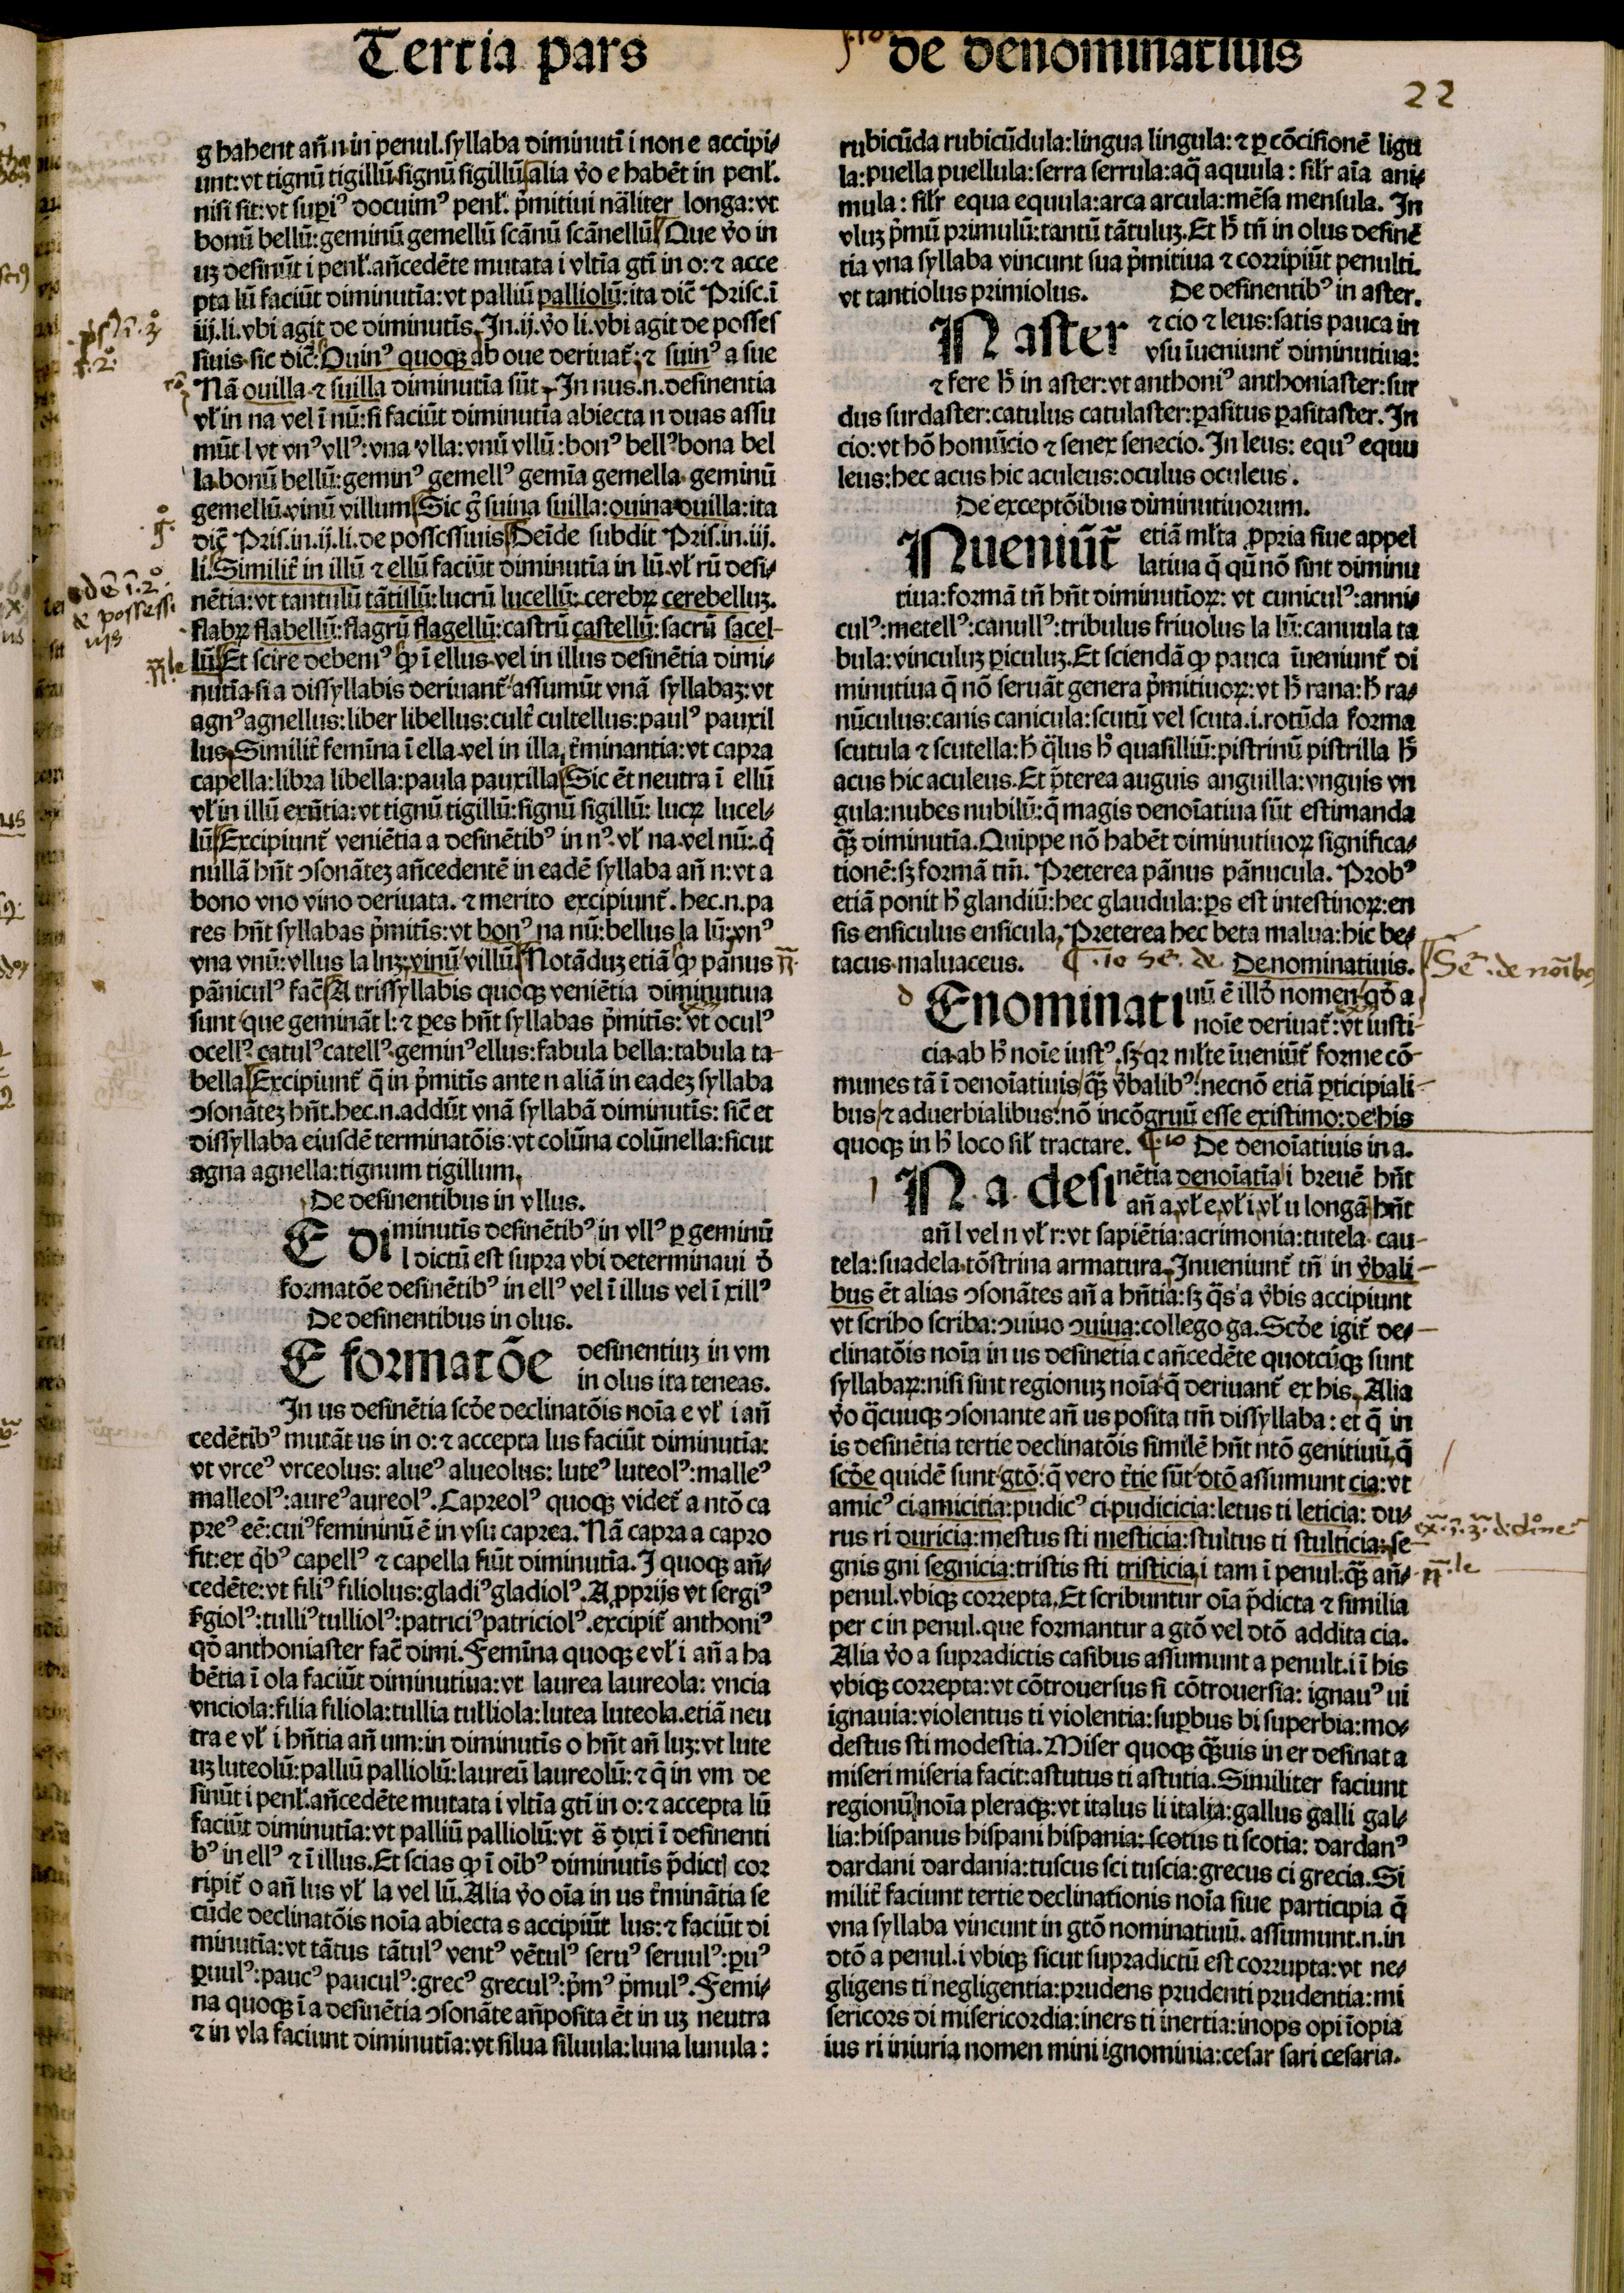 Tertia pars de denominatiuis
22
g habent añ n in penul. syllaba diminutĩ i non e accipi-
unt: vt tignũ tigillũ. signũ sigillũ alia ṽo e habẽt in penł.
nisi sit: vt supiꝰ docuimꝰ penł. p̃mitiui nãliter longa: vt
bonũ bellũ: geminũ gemellũ scãnũ scãnellũ Que ṽo in
uꝫ desinũt i penł. añcedẽte mutata i vltĩa gtĩ in o: ⁊ acce
pta lũ faciũt diminutĩa: vt palliũ palliolũ: ita dic̃ Prisc. ĩ
iij. li. vbi agit de diminutĩs. In. ij. ṽo li. vbi agit de posses
siuis. sic dic̃. Ouinꝰ quoqꝫ ab oue deriuat̃: ⁊ suinꝰ a sue
Nã ouilla. ⁊ suilla diminutĩa sũt. In nus. n. desinentia
vł in na vel ĩ nũ: si faciũt diminutĩa abiecta n duas assu
mũt l vt vnꝰ vllꝰ: vna vlla: vnũ vllũ: bonꝰ bellꝰ bona bel
la. bonũ bellũ: geminꝰ gemellꝰ gemĩa gemella. geminũ
gemellũ. vinũ villum Sic g̃ suina suilla: ouina ouilla: ita
dic̃ Pris. in. ij. li. de possessiuis Deĩde subdit Pris. in. iij.
li. Similit̃ in illũ ⁊ ellũ faciũt diminutĩa in lũ. vł rũ desi-
nẽtia: vt tantulũ tãtillũ: lucrũ lucellũ: cerebꝝ cerebelluꝫ.
flabꝝ flabellũ: flagrũ flagellũ: castrũ castellũ: sacrũ sacel-
lũ Et scire debemꝰ ꝙ ĩ ellus. vel in illus desinẽtia dimi-
nutĩa. si a dissyllabis deriuant̃ assumũt vnã syllabaꝫ: vt
agnꝰ agnellus: liber libellus: cult̃ cultellus: paulꝰ pauxil
lus. Similit̃ femĩna ĩ ella. vel in illa, t̃minantia: vt capra
capella: libra libella: paula pauxilla Sic ẽt neutra ĩ ellũ
vł in illũ exñtia: vt tignũ tigillũ: signũ sigillũ: lucꝝ lucel-
lũ Excipiunt̃ veniẽtia a desinẽtibꝰ in nꝰ. vł na. vel nũ: q̃
nullã hñt ɔsonãteꝫ añcedentẽ in eadẽ syllaba añ n: vt a
bono vno vino deriuata. ⁊ merito excipiunt̃. hec. n. pa
res hñt syllabas p̃mitĩs: vt bonꝰ na nũ: bellus la lũ: vnꝰ
vna vnũ: vllus la luꝫ: vinũ villũ Notãduꝫ etiã ꝙ pãnus
pãniculꝰ fac̃ A trissyllabis quoqꝫ veniẽtia diminutiua
sunt que geminãt l: ⁊ ꝑes hñt syllabas p̃mitĩs: vt oculꝰ
ocellꝰ. catulꝰ catellꝰ. geminꝰ ellus: fabula bella: tabula ta-
bella Excipiunt̃ q̃ in p̃mitĩs ante n aliã in eadeꝫ syllaba
ɔsonãteꝫ hñt. hec. n. addũt vnã syllabã diminutĩs: sic̃ et
dissyllaba eiusdẽ terminatõis: vt colũna colũnella: sicut
agna agnella: tignum tigillum.
De desinentibus in vllus.
E di minutĩs desinẽtibꝰ in vllꝰ ꝑ geminũ
l dictũ est supra vbi determinaui õ
formatõe desinẽtibꝰ in ellꝰ vel ĩ illus vel ĩ xillꝰ
De desinentibus in olus.
E formatõe desinentiuꝫ in vm
in olus ita teneas.
In us desinẽtia scõe declinatõis noĩa e vł i añ
cedẽtibꝰ mutãt us in o: ⁊ accepta lus faciũt diminutĩa:
vt vrceꝰ vrceolus: alueꝰ alueolus: luteꝰ luteolꝰ: malleꝰ
malleolꝰ: aureꝰ aureolꝰ. Capreolꝰ quoqꝫ videt̃ a ntõ ca
preꝰ eẽ: cuiꝰ femininũ ẽ in vsu caprea. Nã capra a capro
fit: ex qb̃ꝰ capellꝰ ⁊ capella fiũt diminutĩa. I quoqꝫ añ-
cedẽte: vt filiꝰ filiolus: gladiꝰ gladiolꝰ. A ꝓprijs vt sergiꝰ
s̃giolꝰ: tulliꝰ tulliolꝰ: patriciꝰ patriciolꝰ. excipit̃ anthoniꝰ
qõ anthoniaster fac̃ dimi. Femĩna quoqꝫ e vł i añ a ha
bẽtia ĩ ola faciũt diminutiua: vt laurea laureola: vncia
vnciola: filia filiola: tullia tulliola: lutea luteola. etiã neu
tra e vł i hñtia añ um: in diminutĩs o hñt añ luꝫ: vt lute
uꝫ luteolũ: palliũ palliolũ: laureũ laureolũ: ⁊ q̃ in vm de
sinũt i penł. añcedẽte mutata i vltĩa gtĩ in o: ⁊ accepta lũ
faciũt diminutĩa: vt palliũ palliolũ: vt s̃ dixi ĩ desinenti
bꝰ in ellꝰ ⁊ ĩ illus. Et scias ꝙ ĩ oĩbꝰ diminutĩs p̃dict̃ cor
ripit̃ o añ lus vł la vel lũ. Alia ṽo oĩa in us t̃minãtia se
cũde declinatõis noĩa abiecta s accipiũt lus: ⁊ faciũt di
minutĩa: vt tãtus tãtulꝰ ventꝰ vẽtulꝰ seruꝰ seruulꝰ: ꝑuꝰ
ꝑuulꝰ: paucꝰ pauculꝰ: grecꝰ greculꝰ: p̃mꝰ p̃mulꝰ. Femi-
na quoqꝫ ĩ a desinẽtia ɔsonãte añposita ẽt in uꝫ neutra
⁊ in vla faciunt diminutĩa: vt silua siluula: luna lunula:
rubicũda rubicũdula: lingua lingula: ⁊ ꝑ cõcisionẽ ligu
la: puella puellula: serra serrula: aq̃ aquula: silr̃ aĩa ani-
mula: silr̃ equa equula: arca arcula: mẽsa mensula. In
vluꝫ p̃mũ primulũ: tantũ tãtuluꝫ. Et h̃ tñ in olus desinẽ
tia vna syllaba vincunt sua p̃mitiua ⁊ corripiũt penulti.
vt tantiolus primiolus. De desinentibꝰ in aster.
IN aster ⁊ cio ⁊ leus: satis pauca in
vsu ĩueniunt̃ diminutiua:
⁊ fere h̃ in aster: vt anthoniꝰ anthoniaster: sur
dus surdaster: catulus catulaster: ꝑasitus ꝑasitaster. In
cio: vt hõ homũcio ⁊ senex senecio. In leus: equꝰ equu
leus: hec acus hic aculeus: oculus oculeus.
De exceptõibus diminutiuorum.
INueniũt̃ etiã młta ꝓpria siue appel
latiua q̃ qũ nõ sint diminu
tiua: formã tñ hñt diminutĩoꝝ: vt cuniculꝰ: anni-
culꝰ: metellꝰ: canullꝰ: tribulus friuolus la lũ: cannula ta
bula: vinculuꝫ ꝑiculuꝫ. Et sciendã ꝙ pauca ĩueniunt̃ di
minutiua q̃ nõ seruãt genera p̃mitiuoꝝ: vt h̃ rana: h̃ ra-
nũculus: canis canicula: scutũ vel scuta. i. rotũda forma
scutula ⁊ scutella: h̃ q̃lus h̃ quasilliũ: pistrinũ pistrilla h̃
acus hic aculeus. Et p̃terea auguis anguilla: vnguis vn
gula: nubes nubilũ: q̃ magis denoĩatiua sũt estimanda
q̃ꝫ diminutĩa. Quippe nõ habẽt diminutiuoꝝ significa-
tionẽ: sꝫ formã tm̃. Preterea pãnus pãnucula. Probꝰ
etiã ponit h̃ glandiũ: hec glaudula: ꝑs est intestinoꝝ: en
sis ensiculus ensicula, Preterea hec beta malua: hic be-
tacus. maluaceus. De nominatiuis.
Enominati uũ ẽ illõ nomen qõ a
noĩe deriuat̃: vt iusti-
cia. ab h̃ noĩe iustꝰ. sꝫ qꝛ młte ĩueniũt̃ forme cõ-
munes tã ĩ denoĩatiuis q̃ꝫ ṽbalibꝰ: necnõ etiã ꝑticipiali-
bus ⁊ aduerbialibus: nõ incõgruũ esse existimo: de his
quoqꝫ in h̃ loco sił tractare. De denoĩatiuis in a.
IN. a. desi nẽtia denoĩatĩa i breuẽ hñt
añ a, vł e, vł i, vł u longã hñt
añ l vel n vł r: vt sapiẽtia: acrimonia: tutela. cau-
tela: suadela. tõstrina armatura. Inueniunt̃ tñ in ṽbali-
bus ẽt alias ɔsonãtes añ a hñtia: sꝫ q̃s a ṽbis accipiunt
vt scribo scriba: ɔuiuo ɔuiua: collego. ga. Scõe igit̃ de-
clinatõis noĩa in us desinẽtia c añcedẽte quotcũqꝫ sunt
syllabaꝝ: nisi sint regionuꝫ noĩa q̃ deriuant̃ ex his, Alia
ṽo q̃cuuqꝫ ɔsonante añ us posita tm̃ dissyllaba: et q̃ in
is desinẽtia tertie declinatõis similẽ hñt ntõ genitiuũ, q̃
scõe quidẽ sunt gtõ: q̃ vero t̃tie sũt dtõ assumunt cia: vt
amicꝰ ci amicitia: pudicꝰ ci pudicicia: letus ti leticia: du-
rus ri duricia: mestus sti mesticia: stultus ti stulticia: se-
gnis gni segnicia: tristis sti tristicia, i tam ĩ penul. q̃ꝫ añ-
penul. vbiqꝫ correpta, Et scribuntur oĩa p̃dicta ⁊ similia
per c in penul. que formantur a gtõ vel dtõ addita cia.
Alia ṽo a supradictis casibus assumunt a penult. i ĩ his
vbiqꝫ correpta: vt cõtrouersus si cõtrouersia: ignauꝰ ui
ignauia: violentus ti violentia: suꝑbus bi superbia: mo-
destus sti modestia. Miser quoqꝫ q̃ꝫuis in er desinat a
miseri miseria facit: astutus ti astutia. Similiter faciunt
regionũ noĩa pleraqꝫ: vt italus li italia: gallus galli gal-
lia: hispanus hispani hispania: scotus ti scotia: dardanꝰ
dardani dardania: tuscus sci tuscia: grecus ci grecia. Si
milit̃ faciunt tertie declinationis noĩa siue participia q̃
vna syllaba vincunt in gtõ nominatiuũ. assumunt. n. in
dtõ a penul. i vbiqꝫ sicut supradictũ est corrupta: vt ne-
gligens ti negligentia: prudens prudenti prudentia: mi
sericors di misericordia: iners ti inertia: inops opi ĩopia
ius ri iniuria nomen mini ignominia: cesar sari cesaria.